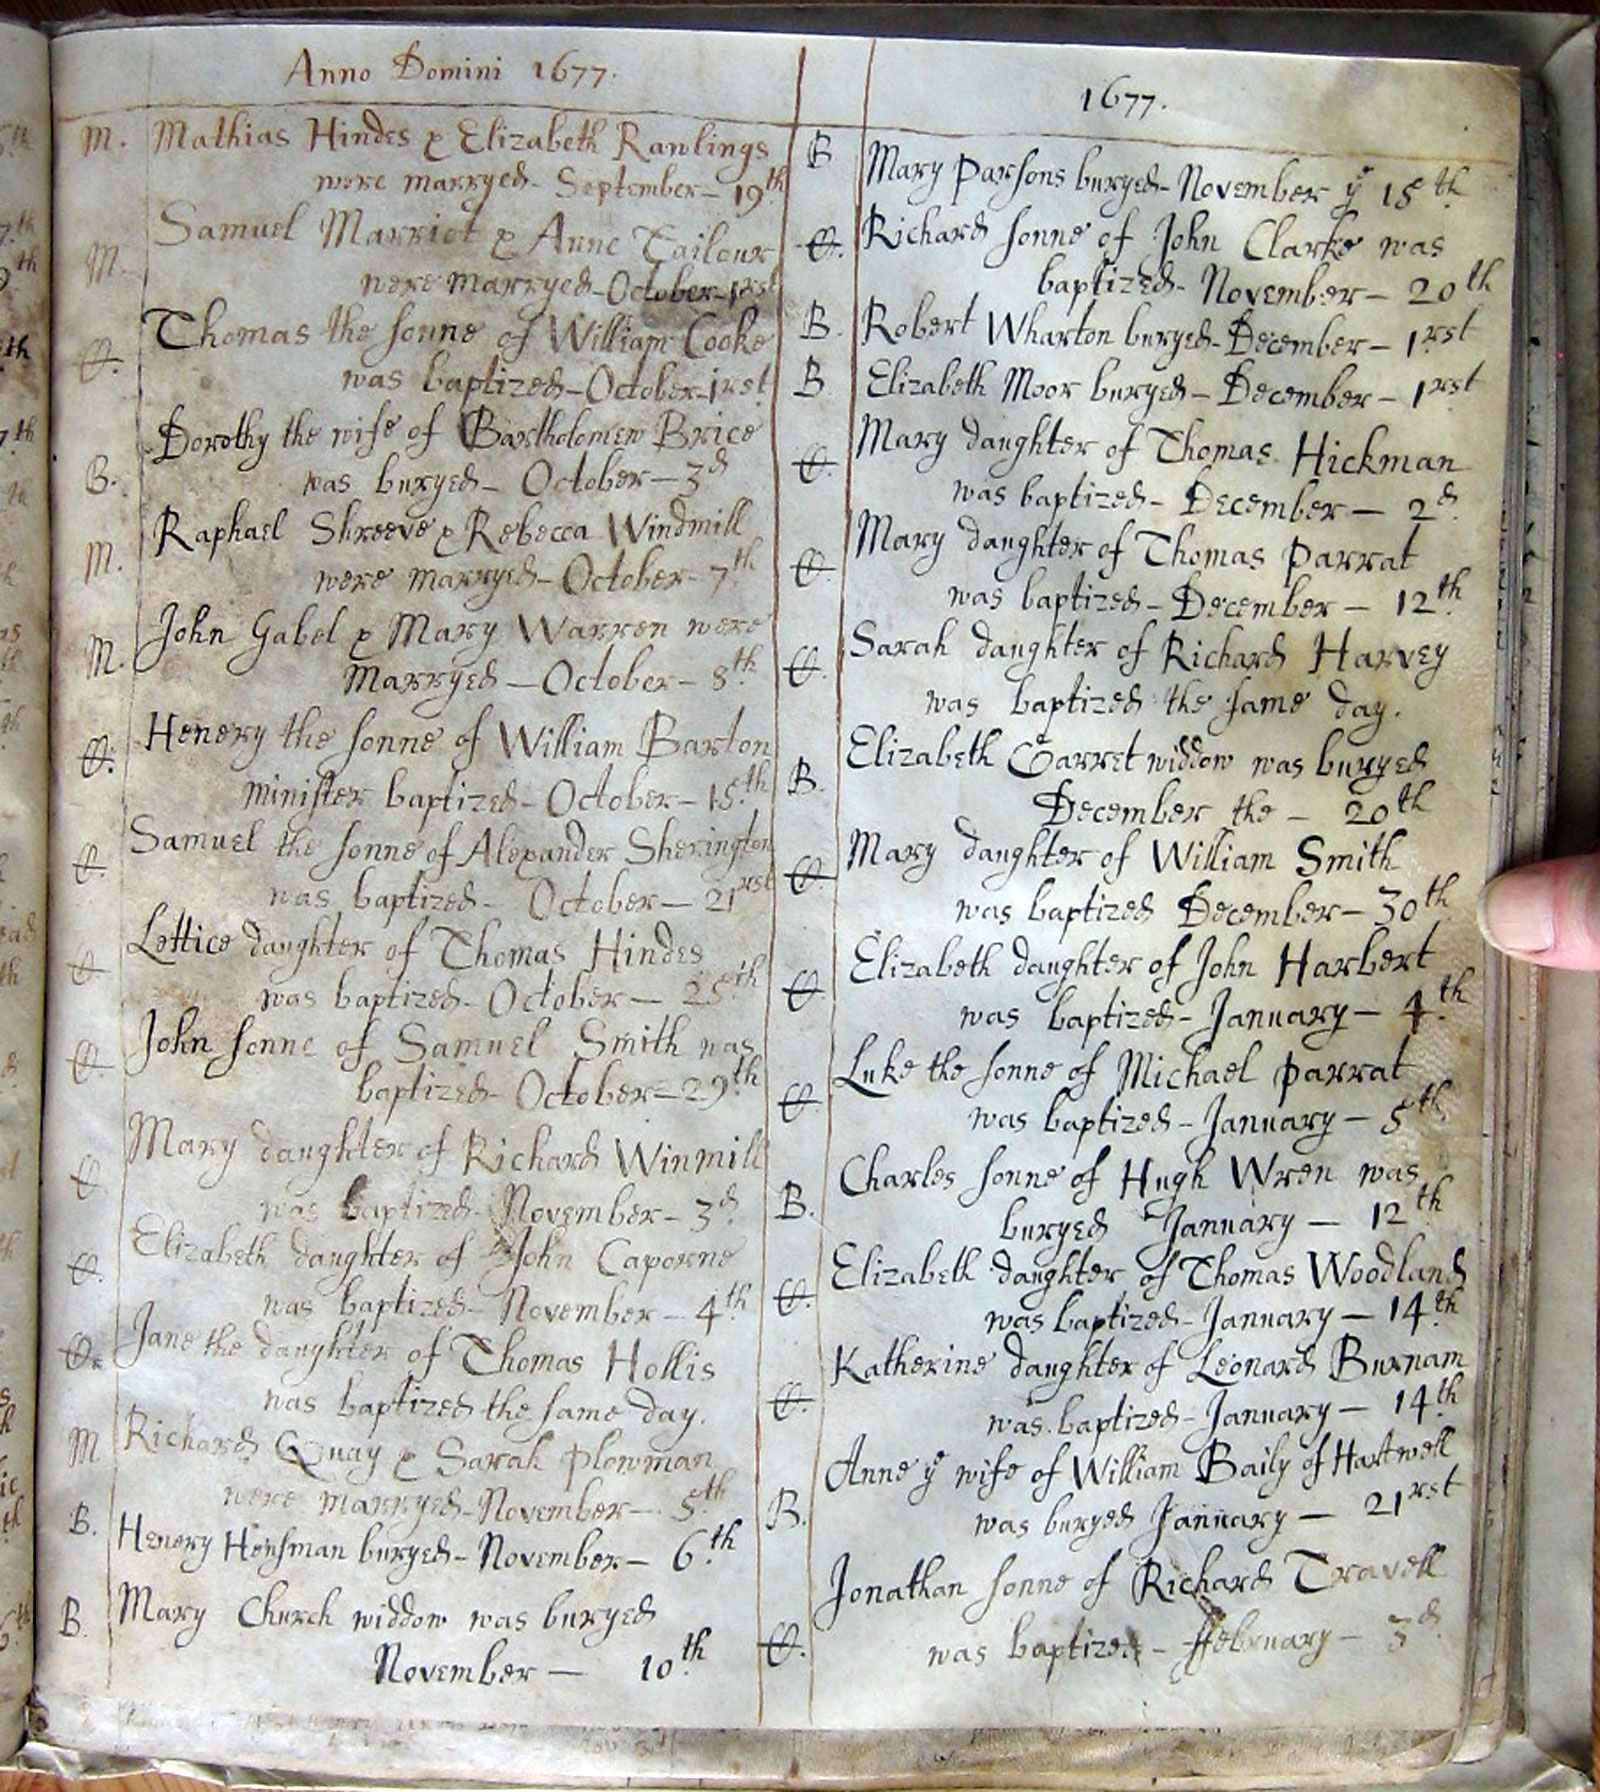 Anno Domini 1677.
M. Mathias Hindes & Elizabeth Rawlings
were marryed - September - 19th
Samuel Marriot & Anne Tailour
M. were marryed - October - 1rst
Thomas the sonne of William Cooke
C. was baptized - October - 1rst
Dorothy the wife of Bartholomew Brice
B. was buryed - October - 3d
Raphael Shreeve & Rebecca Windmill
M. were marryed - October - 7th
John Gabel & Mary Warren were
M. Marryed - October - 8th
C. Henery the sonne of William Barton
minister baptized - October - 15th
Samuel the sonne of Alexander Sherington
C. was baptized - October - 21rst
Lettice daughter of Thomas Hindes
C. was baptized - October - 25th
John sonne of Samuel Smith was
C. baptized - October - 29th
Mary daughter of Richard Winmill
C. was baptized - November - 3d
Elizabeth daughter of John Caporne
C. was baptized - November - 4th
C. Jane the daughter of Thomas Hollis
was baptized the same day.
M Richard Quay & Sarah Plowman
were marryed - November - 5th
B. Henery Hensman buryed - November - 6th
B. Mary Church widdow was buryed
November - 10th
1677.
B Mary Parsons buryed - November ye 18th
C. Richard sonne of John Clarke was
baptized - November - 20th
B. Robert Wharton buryed - December - 1rst
B Elizabeth Moor buryed - December - 1rst
Mary daughter of Thomas Hickman
C. was baptized - December - 2d
Mary daughter of Thomas Parrat
C. was baptized - December - 12th
Sarah daughter of Richard Harvey
C. was baptized the same day.
Elizabeth Garret widdow was buryed
B. December the - 20th
Mary daughter of William Smith
C. was baptized December - 30th
Elizabeth daughter of John Harbert
C. was baptized - January - 4th
Luke the sonne of Michael Parrat
C. was baptized - January - 5th
Charles sonne of Hugh Wren was
B. buryed January - 12th
Elizabeth daughter of Thomas Woodland
C. was baptized - January - 14th
Katherine daughter of Leonard Burnam
C. was baptized - January - 14th
Anne ye wife of William Baily of Hartwell
B. was buryed January - 21rst
Jonathan sonne of Richard Travell
C. was baptized - February - 3d